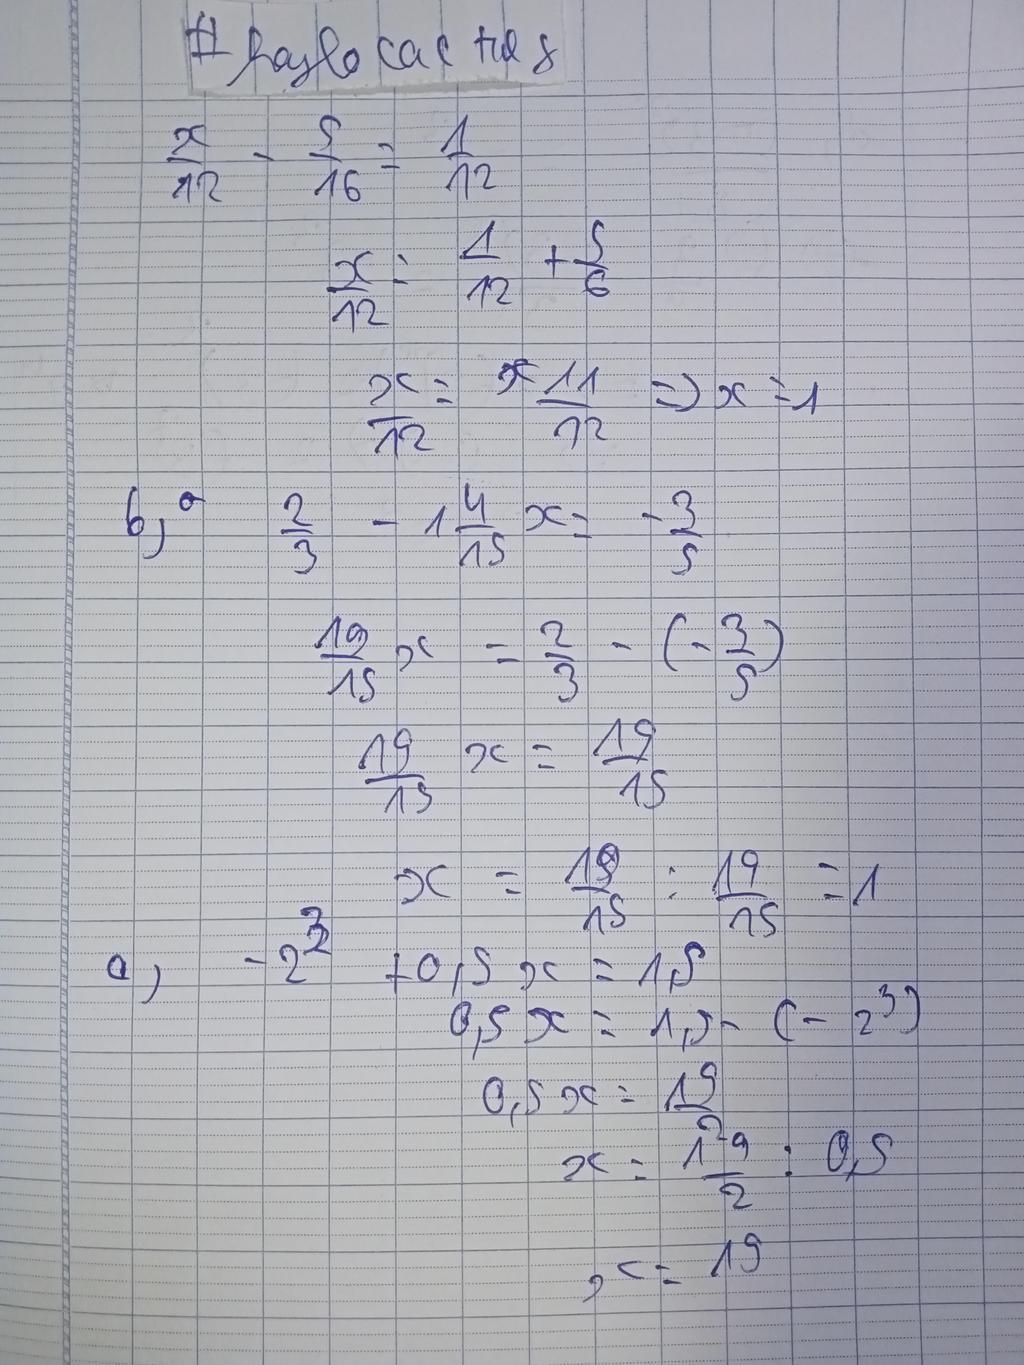 x/12 - 5/16 = 1/12
x/12 = 1/12 + 5/6
x/12 = 11/12 => x = 1
b, 2/3 - 1 4/15 x = -3/5
19/15 x = 2/3 - (-3/5)
19/15 x = 19/15
x = 19/15 : 19/15 = 1
a, -2^3 + 0,5x = 1,5
0,5x = 1,5 - (-2^3)
0,5x = 19/2
x = 19/2 : 0,5
x = 19